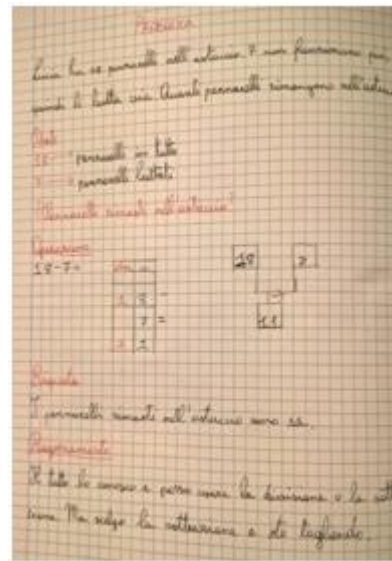 Problema
Lucia ha 18 pennarelli nell'astuccio. 7 non funzionano più
quindi li butta via. Quanti pennarelli rimangono nell'astuccio
Dati
18 pennarelli in tutto
7 pennarelli buttati
? Pennarelli rimasti nell'astuccio
Operazione
18-7=
da u
1 8 -
7 =
1 1
18 7
-
11
Risposta
I pennarelli rimasti nell'astuccio sono 11.
Ragionamento
Il tutto lo conosco e posso usare la divisione o la sott
razione. Ma scelgo la sottrazione e sto togliendo.